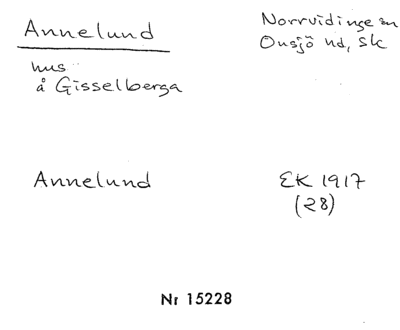 Annelund
Norrvidinge sn
Onsjö hd, Sk
hus
å Gisselberga
Annelund
EK 1917
(28)
Nr 15228